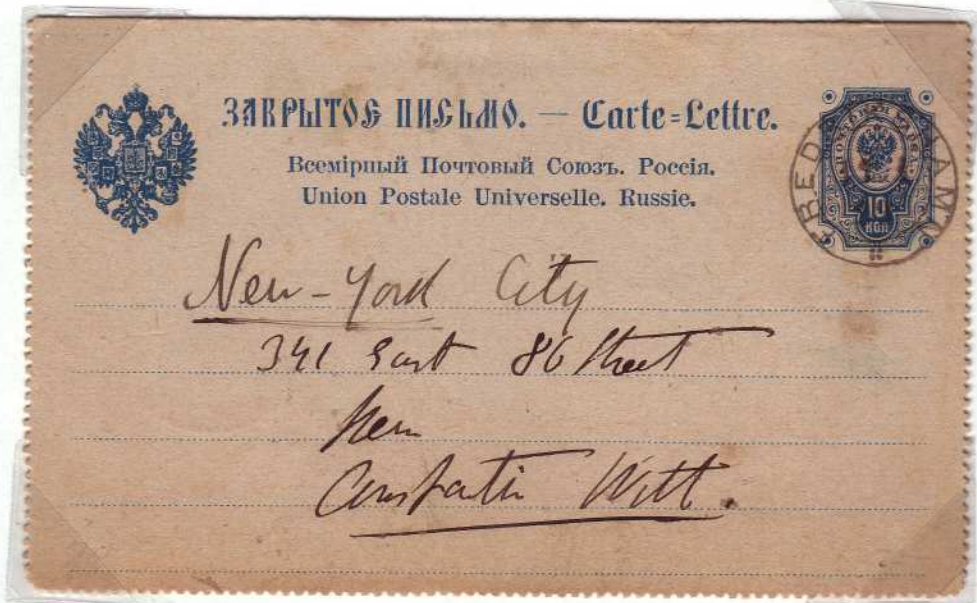 ЗАКРЫТОЕ ПИСЬМО. — Carte=Lettre.
Всемірный Почтовый Союзъ. Россія.
Union Postale Universelle. Russie.
ПОЧТОВАЯ МАРКА
10
КОП
FREDRIKSHAMN
New-York City
341 East 86 Street
Herrn
Constantin Witt.